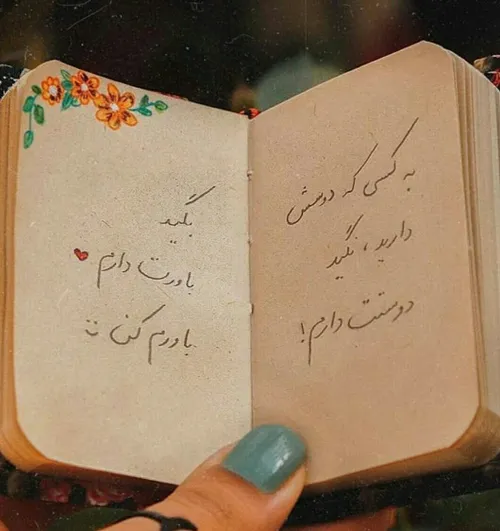 به کسی که دوسش
دارید، نگید
دوستت دارم!
بگید
باورت دارم
باورم کن